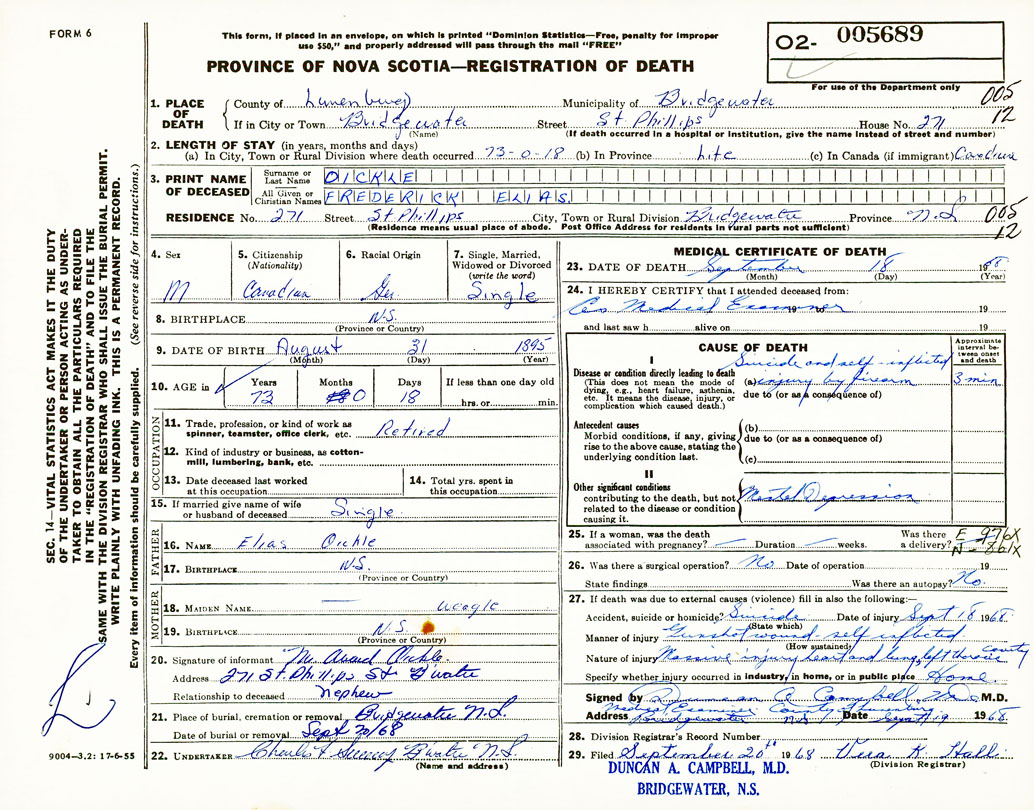 FORM 6
This form, if placed in an envelope, on which is printed "Dominion Statistics—Free, penalty for improper
use $50," and properly addressed will pass through the mail "FREE"
PROVINCE OF NOVA SCOTIA—REGISTRATION OF DEATH
O2- 005689
For use of the Department only
005
12
1. PLACE OF DEATH
County of Lunenburg Municipality of Bridgewater
If in City or Town Bridgewater Street St Phillips House No. 271
(Name) (If death occurred in a hospital or institution, give the name instead of street and number)
2. LENGTH OF STAY (in years, months and days)
(a) In City, Town or Rural Division where death occurred 73-0-18 (b) In Province Life (c) In Canada (if immigrant) Canadian
3. PRINT NAME OF DECEASED
Surname or Last Name OICKLE
All Given or Christian Names FREDERICK ELIAS.
RESIDENCE No. 271 Street St Phillips City, Town or Rural Division Bridgewater Province N.S
(Residence means usual place of abode. Post Office Address for residents in rural parts not sufficient)
005
12
4. Sex
M
5. Citizenship
(Nationality)
Canadian
6. Racial Origin
Ger
7. Single, Married,
Widowed or Divorced
(write the word)
Single
8. BIRTHPLACE N.S.
(Province or Country)
9. DATE OF BIRTH August 31 1895
(Month) (Day) (Year)
10. AGE in
Years Months Days If less than one day old
73 0 18 hrs. or min.
OCCUPATION
11. Trade, profession, or kind of work as
spinner, teamster, office clerk, etc. Retired
12. Kind of industry or business, as cotton-
mill, lumbering, bank, etc.
13. Date deceased last worked
at this occupation
14. Total yrs. spent in
this occupation
15. If married give name of wife
or husband of deceased Single
FATHER
16. NAME Elias Oickle
17. BIRTHPLACE N.S.
(Province or Country)
MOTHER
18. MAIDEN NAME — Weagle
19. BIRTHPLACE N.S.
(Province or Country)
20. Signature of informant Mr. Oickle
Address 271 St. Phillips St B'water
Relationship to deceased nephew
21. Place of burial, cremation or removal Bridgewater N.S.
Date of burial or removal Sept 20/68
22. UNDERTAKER B'water N.S.
(Name and address)
MEDICAL CERTIFICATE OF DEATH
23. DATE OF DEATH September 18 1968
(Month) (Day) (Year)
24. I HEREBY CERTIFY that I attended deceased from:
As Medical Examiner 19 to 19
and last saw h alive on 19
CAUSE OF DEATH
Approximate interval between onset and death
I
Disease or condition directly leading to death
(This does not mean the mode of
dying, e.g., heart failure, asthenia,
etc. It means the disease, injury, or
complication which caused death.)
Suicide and self-inflicted
(a) injury by firearm 3 min
due to (or as a consequence of)
Antecedent causes
Morbid conditions, if any, giving
rise to the above cause, stating the
underlying condition last.
(b)
due to (or as a consequence of)
(c)
II
Other significant conditions
contributing to the death, but not
related to the disease or condition
causing it.
Mental Depression
25. If a woman, was the death
associated with pregnancy? — Duration — weeks. Was there
a delivery?
E 976X
N-861X
26. Was there a surgical operation? No Date of operation 19
State findings Was there an autopsy? No.
27. If death was due to external causes (violence) fill in also the following:—
Accident, suicide or homicide? Suicide Date of injury Sept 18 1968
(State which)
Manner of injury Gunshot wound - self inflicted
(How sustained)
Nature of injury Massive injury heart and lung, left thoracic cavity
Specify whether injury occurred in industry, in home, or in public place Home.
Signed by Duncan A. Campbell M.D.
Medical Examiner County Lunenburg
Address Bridgewater N.S Date Sept 19 1968.
28. Division Registrar's Record Number
29. Filed September 20th 1968 Vera K. Hall
(Division Registrar)
DUNCAN A. CAMPBELL, M.D.
BRIDGEWATER, N.S.
SEC. 14—VITAL STATISTICS ACT MAKES IT THE DUTY
OF THE UNDERTAKER OR PERSON ACTING AS UNDER-
TAKER TO OBTAIN ALL THE PARTICULARS REQUIRED
IN THE "REGISTRATION OF DEATH" AND TO FILE THE
SAME WITH THE DIVISION REGISTRAR WHO SHALL ISSUE THE BURIAL PERMIT.
WRITE PLAINLY WITH UNFADING INK. THIS IS A PERMANENT RECORD.
Every item of information should be carefully supplied. (See reverse side for instructions.)
9004—3.2: 17-6-55